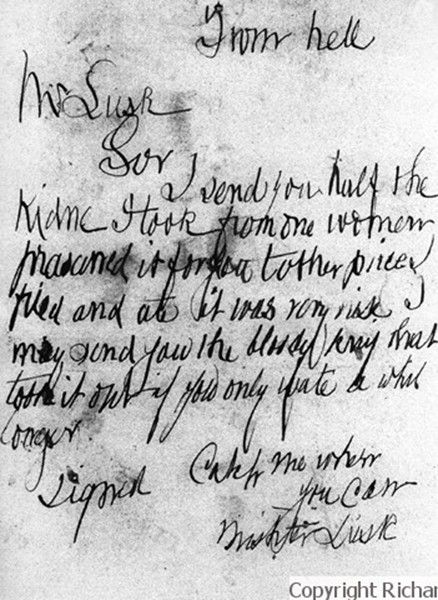 From hell
Mr Lusk
Sor
I send you half the
Kidne I took from one women
prasarved it for you tother piece I
fried and ate it was very nise I
may send you the bloody knif that
took it out if you only wate a whil
longer.
signed
Catch me when
you can
Mishter Lusk
Copyright Richar